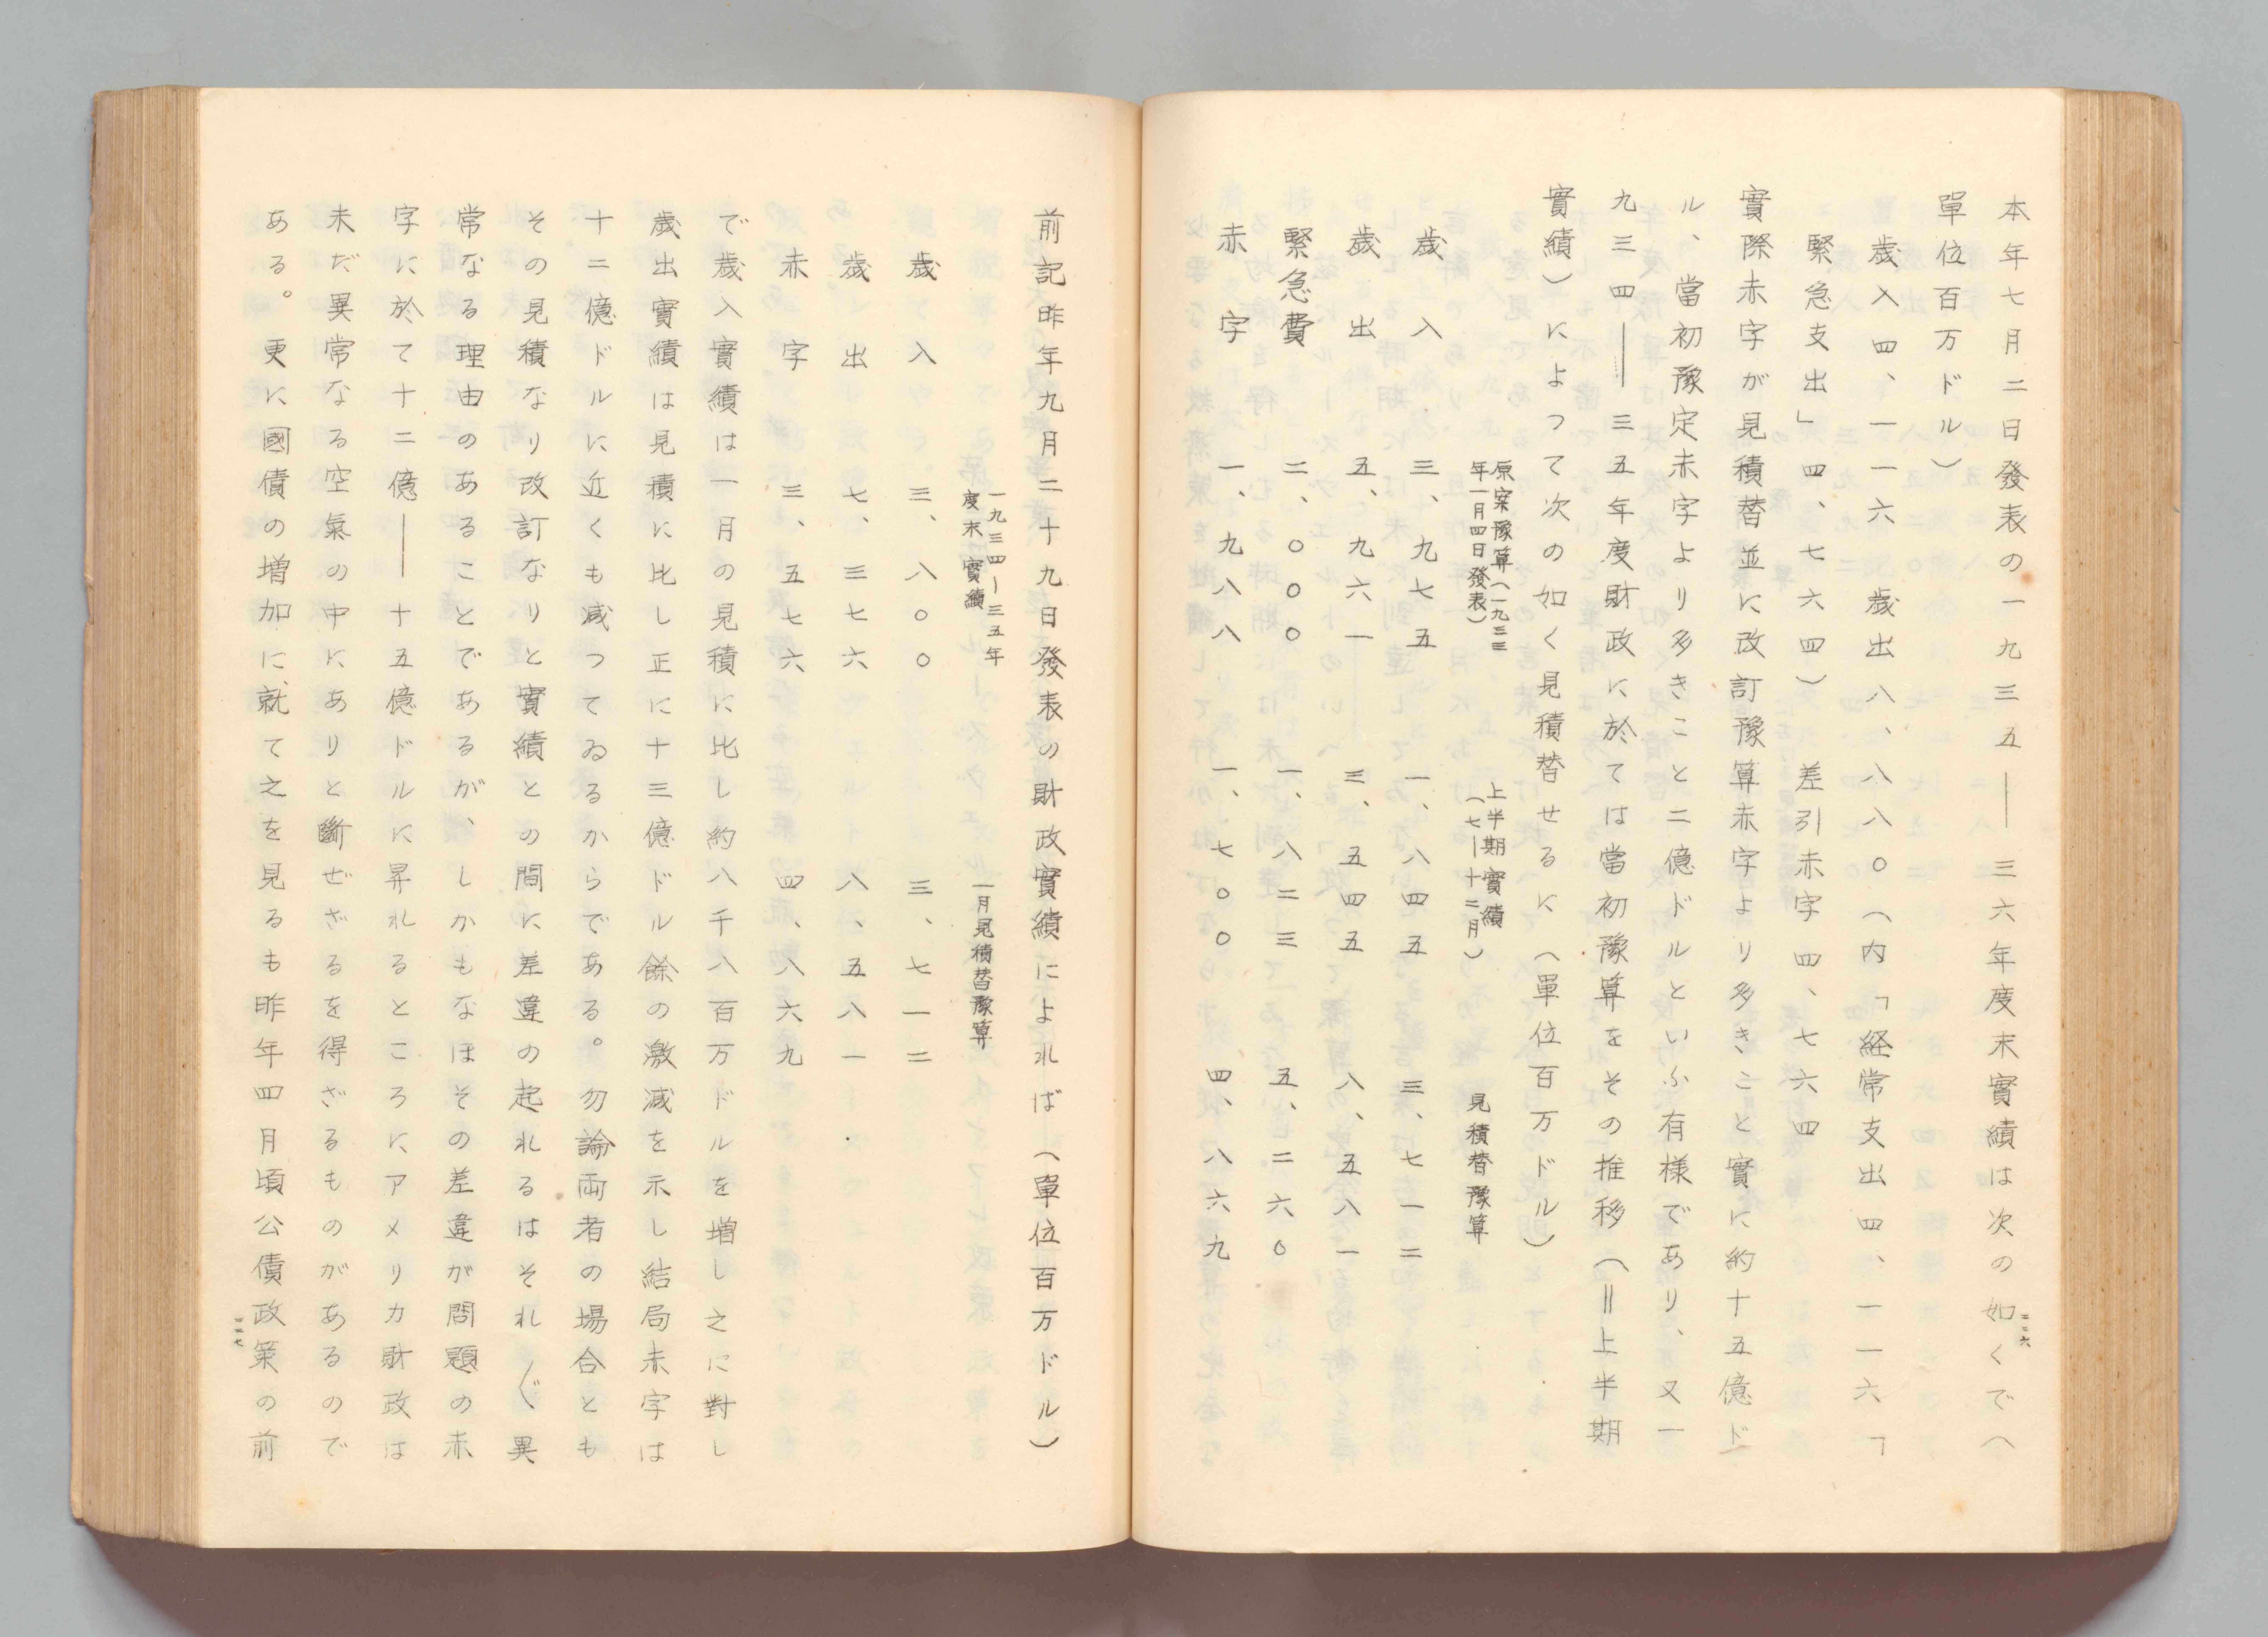 本年七月二日發表の一九三五――三六年度末實績は次の如くで（
單位百万ドル）
歲入四、一一六　歲出八、八八〇（內「経常支出四、一一六「
緊急支出」四、七六四）　差引赤字四、七六四
實際赤字が見積替並に改訂豫算赤字より多きこと實に約十五億ド
ル、當初豫定赤字より多きこと二億ドルといふ有樣であり、又一
九三四――三五年度財政に於ては當初豫算をその推移（＝上半期
實績）によつて次の如く見積替せるに（單位百万ドル）
原案豫算（一九三三
年一月四日發表）
上半期實績
（七－十二月）
見積替豫算
歲入　三、九七五　一、八四五　三、七一二
歲出　五、九六一　三、五四五　八、五八一
緊急費　二、〇〇〇　一、八二三　五、二六〇
赤字　一、九八八　一、七〇〇　四、八六九
二二六
前記昨年九月二十九日發表の財政實績によれば（單位百万ドル）
一九三四－三五年
度末實績
一月見積替豫算
歲入　三、八〇〇　三、七一二
歲出　七、三七六　八、五八一
赤字　三、五七六　四、八六九
で歲入實績は一月の見積に比し約八千八百万ドルを增し之に對し
歲出實績は見積に比し正に十三億ドル餘の激減を示し結局赤字は
十二億ドルに近くも減つてゐるからである。勿論両者の場合とも
その見積なり改訂なりと實績との間に差違の起れるはそれ〲異
常なる理由のあることであるが、しかもなほその差違が問題の赤
字に於て十二億――十五億ドルに昇れるところにアメリカ財政は
未だ異常なる空氣の中にありと斷ぜざるを得ざるものがあるので
ある。更に國債の増加に就て之を見るも昨年四月頃公債政策の前
二二七